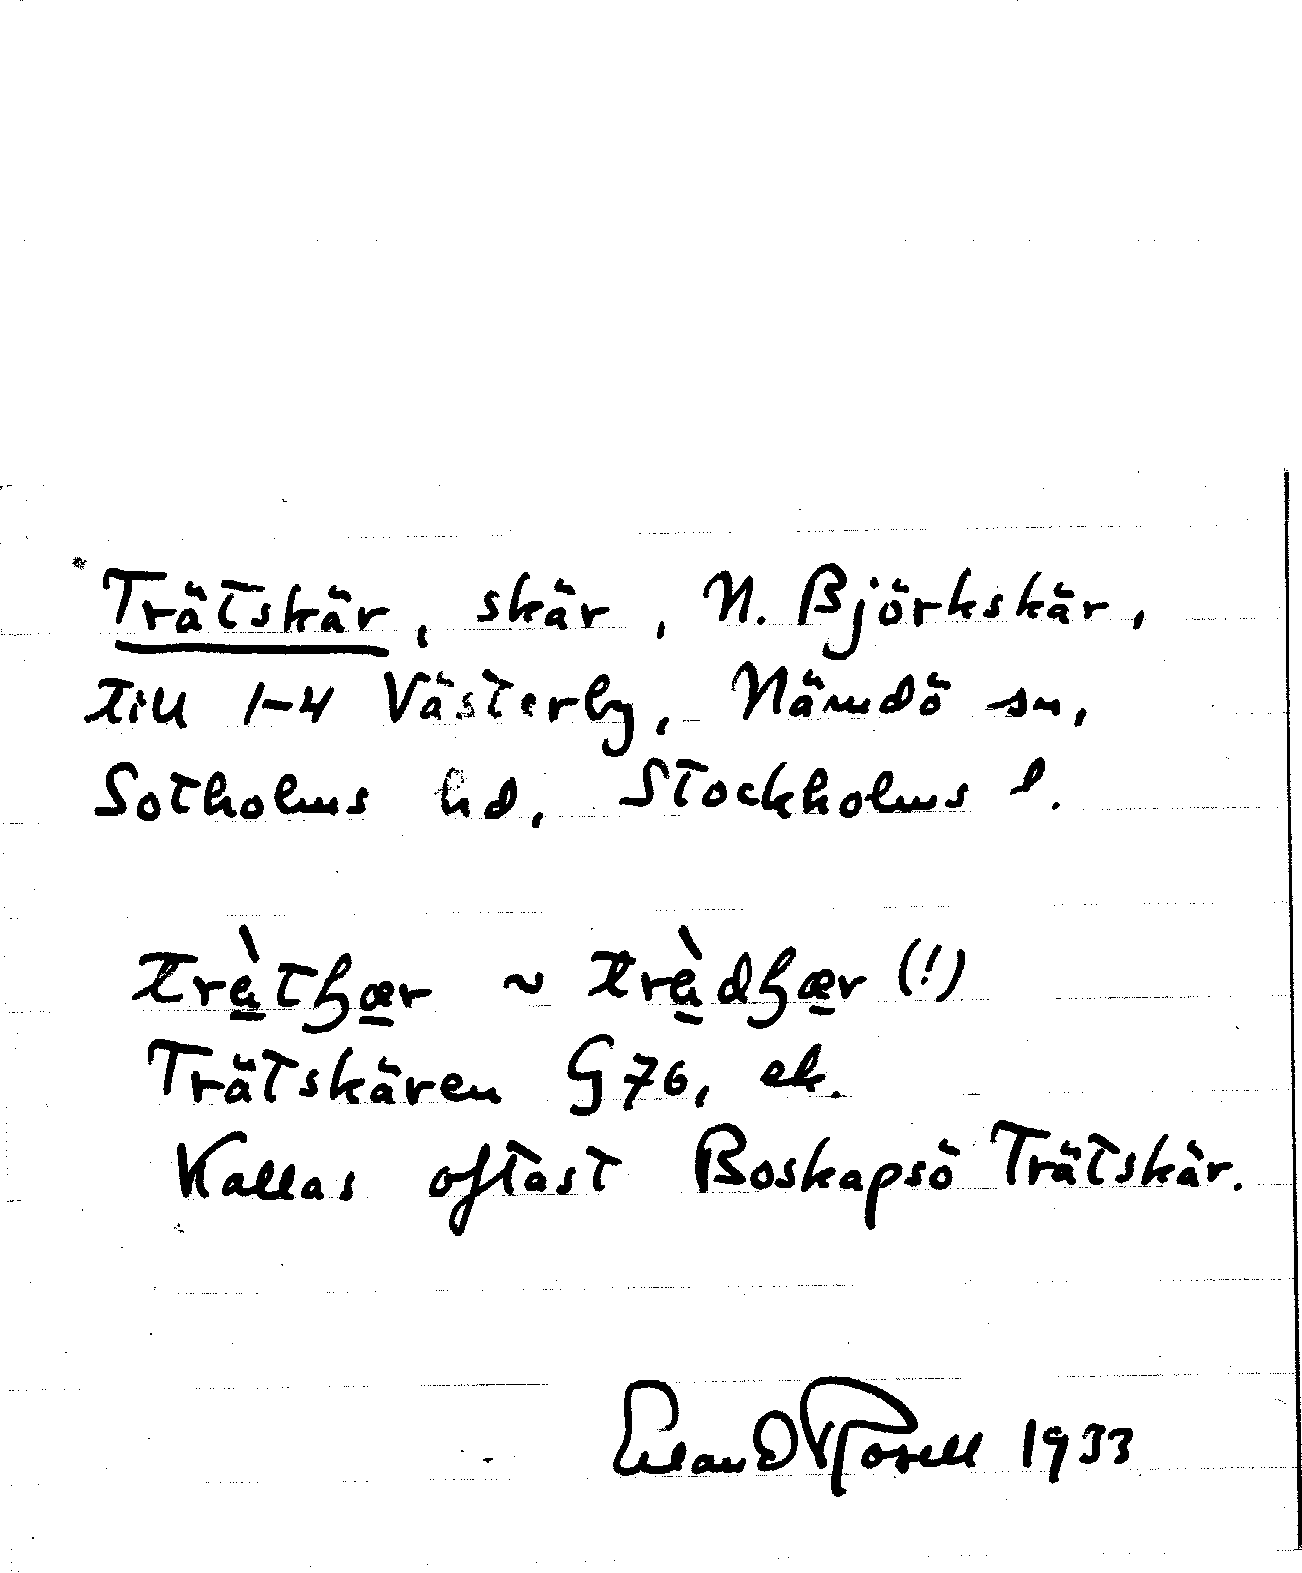 Trätskär, skär, N. Björkskär,
till 1-4 Västerby, Nämdö sn,
Sotholms hd, Stockholms l.
Trätskären G76, ek.
Kallas oftast Boskapsö Trätskär.
Erland Rosell 1933